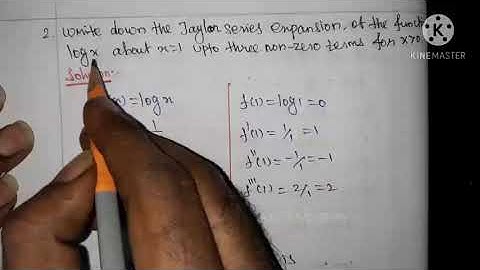 2. Write down the Taylor series expansion, of the funct
log x about x=1 upto three non-zero terms for x>0
Solution:-
= log x
f(1) = log 1 = 0
f'(1) = 1/1 = 1
f''(1) = -1/1 = -1
f'''(1) = 2/1 = 2
is
KINEMASTER